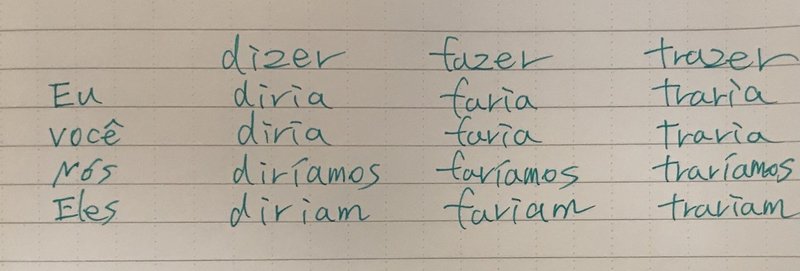 dizer fazer trazer
Eu diria faria traria
você diria faria traria
Nós diríamos faríamos traríamos
Eles diriam fariam trariam